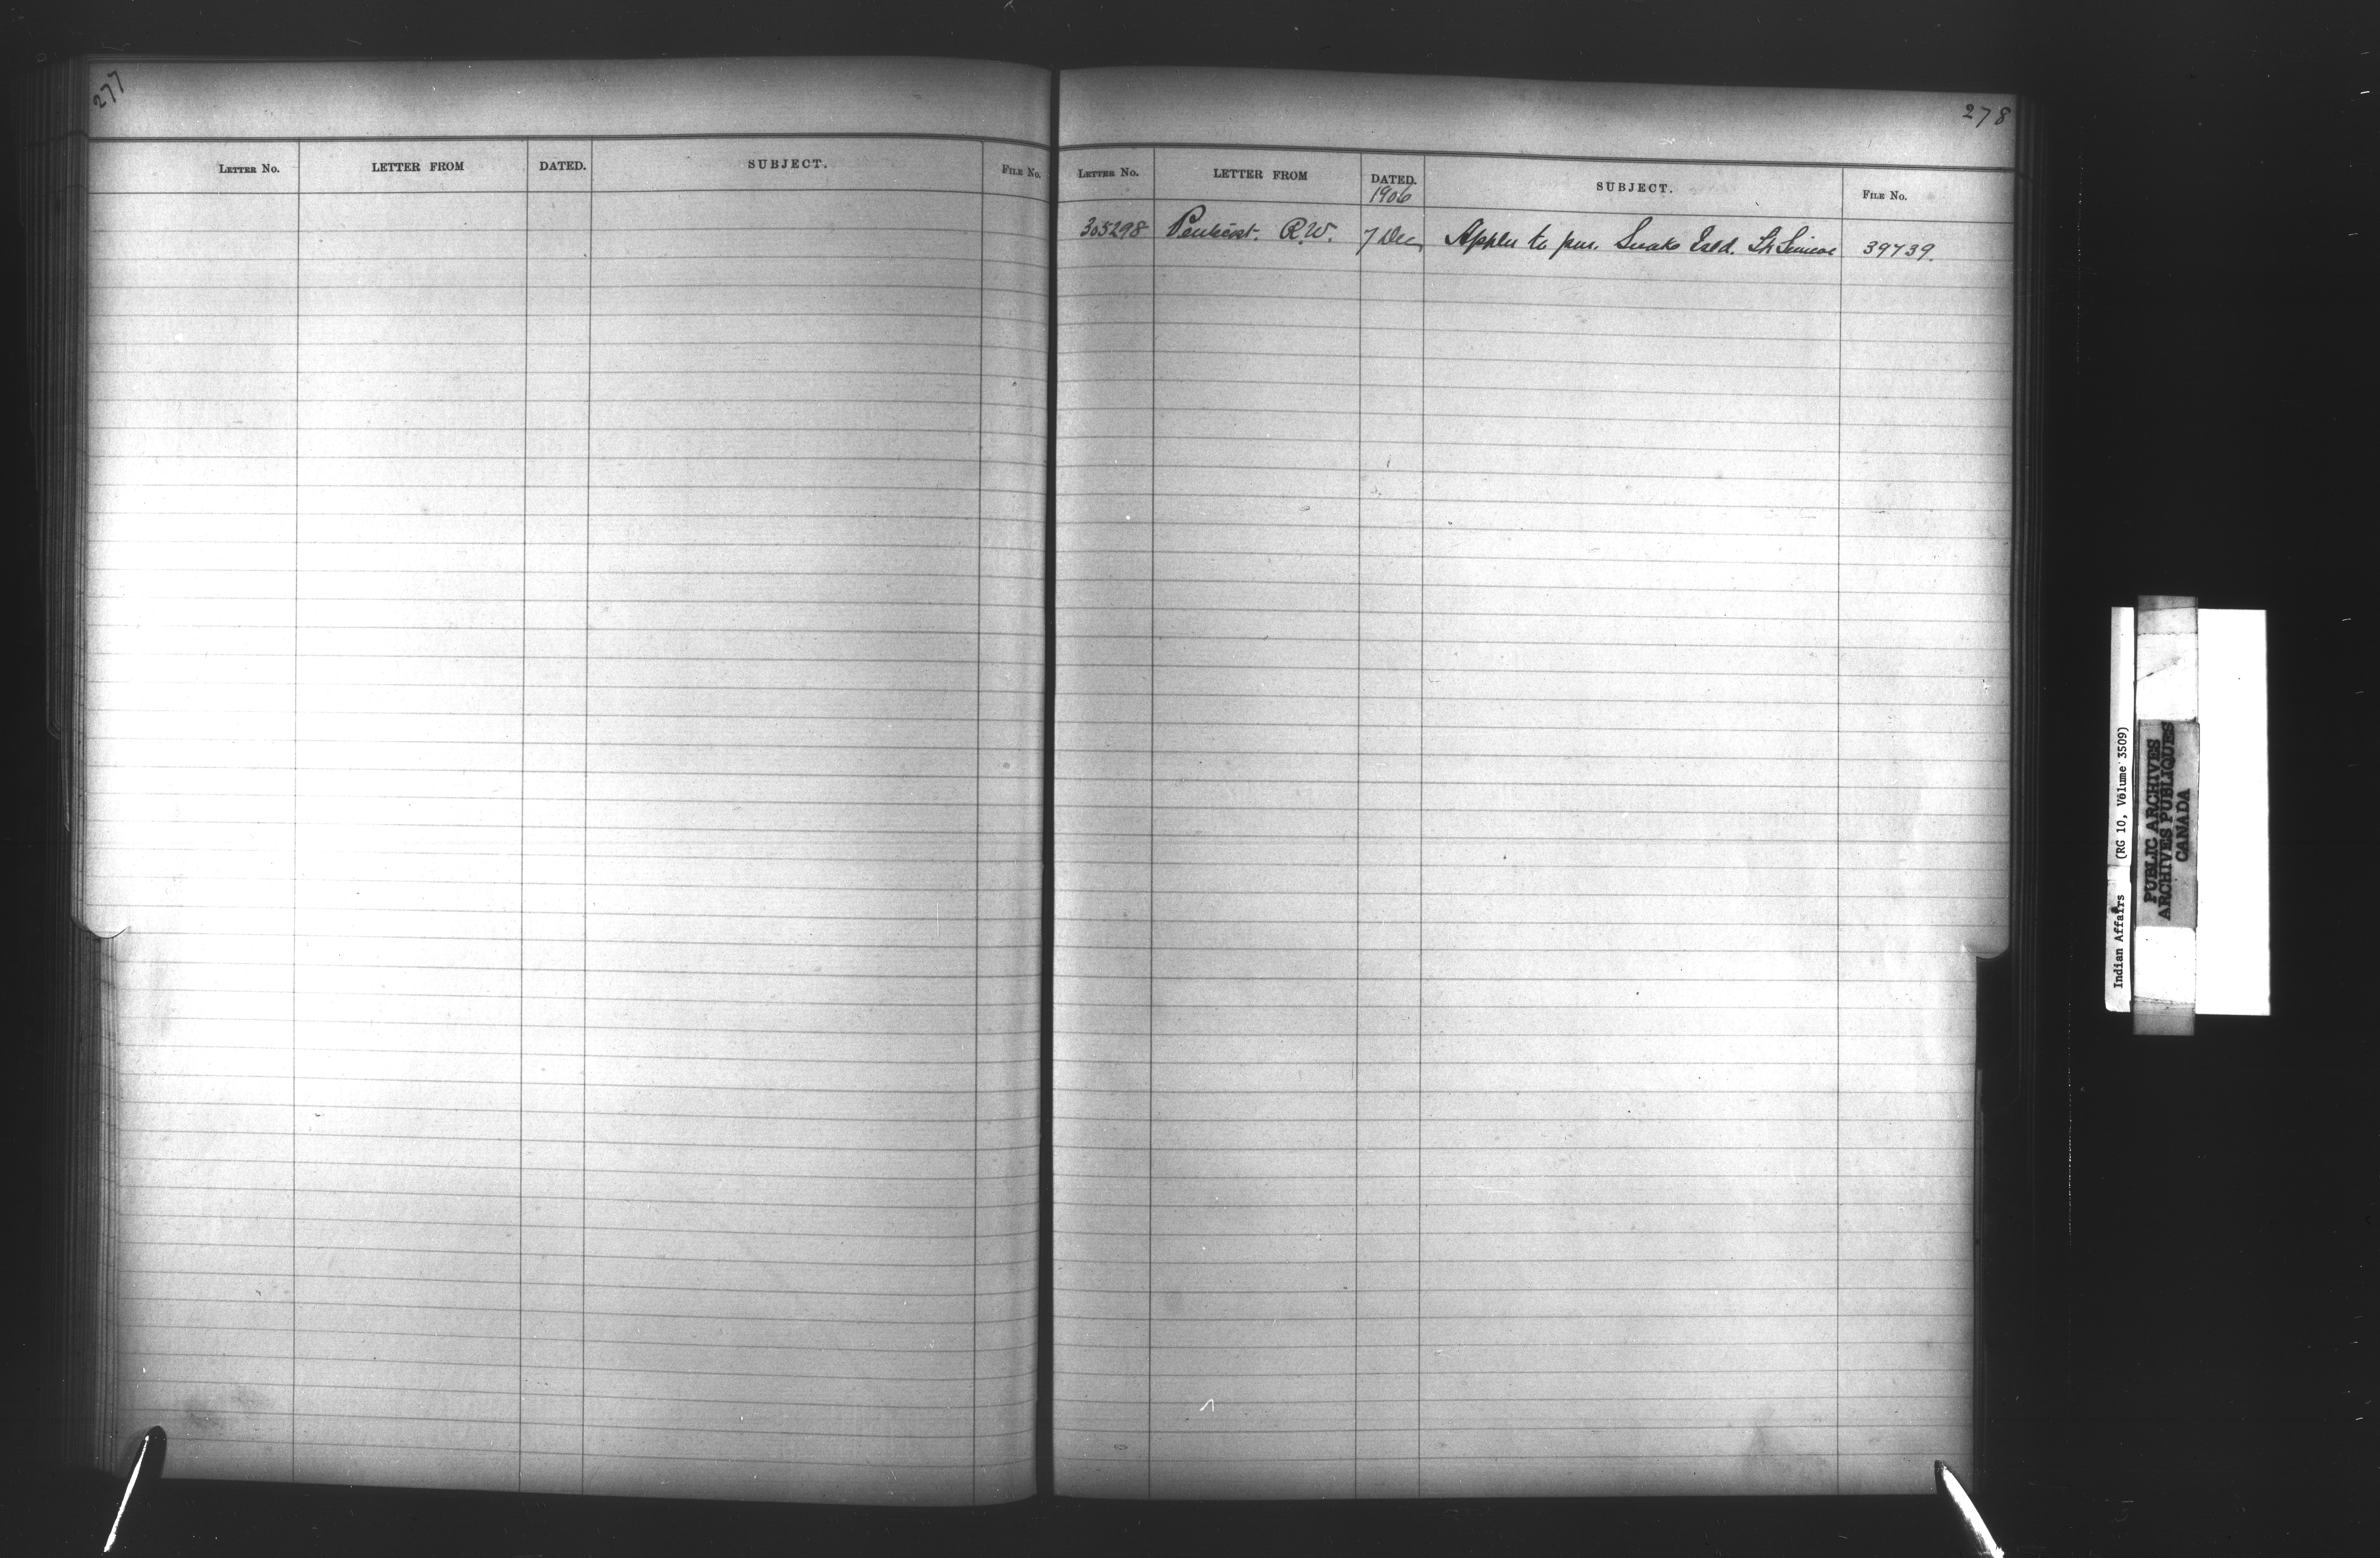 277
LETTER NO. LETTER FROM DATED. SUBJECT. FILE NO.
278
LETTER NO. LETTER FROM DATED. SUBJECT. FILE NO.
1906
305298 R.W. 7 Dec Appln to pur. Snake Isld. Simcoe 39739.
Indian Affairs (RG 10, Volume 3509)
PUBLIC ARCHIVES
ARCHIVES PUBLIQUES
CANADA